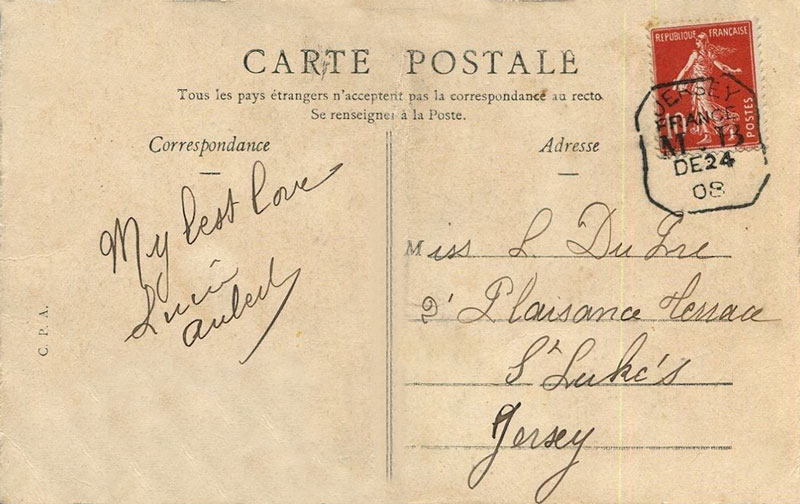 CARTE POSTALE
Tous les pays étrangers n'acceptent pas la correspondance au recto
Se renseigner à la Poste.
Correspondance
Adresse
REPUBLIQUE FRANÇAISE
POSTES
10
JERSEY
FRANCE
M.B
DE24
08
My best love
Lucie
Miss L. Du Fre
Plaisance Terrace
St Luke's
Jersey
C.P.A.